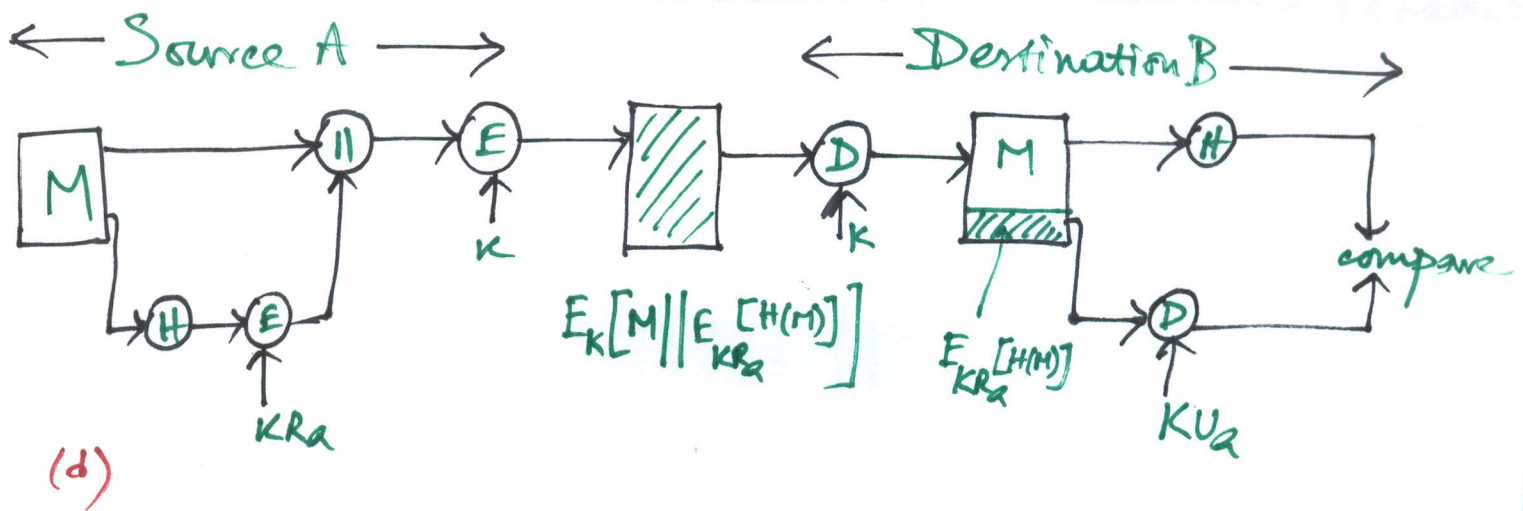 Source A
Destination B
M
||
E
D
M
H
K
K
compare
H
E
E_K[M||E_{KR_a}[H(M)]]
E_{KR_a}[H(M)]
D
KR_a
KU_a
(d)